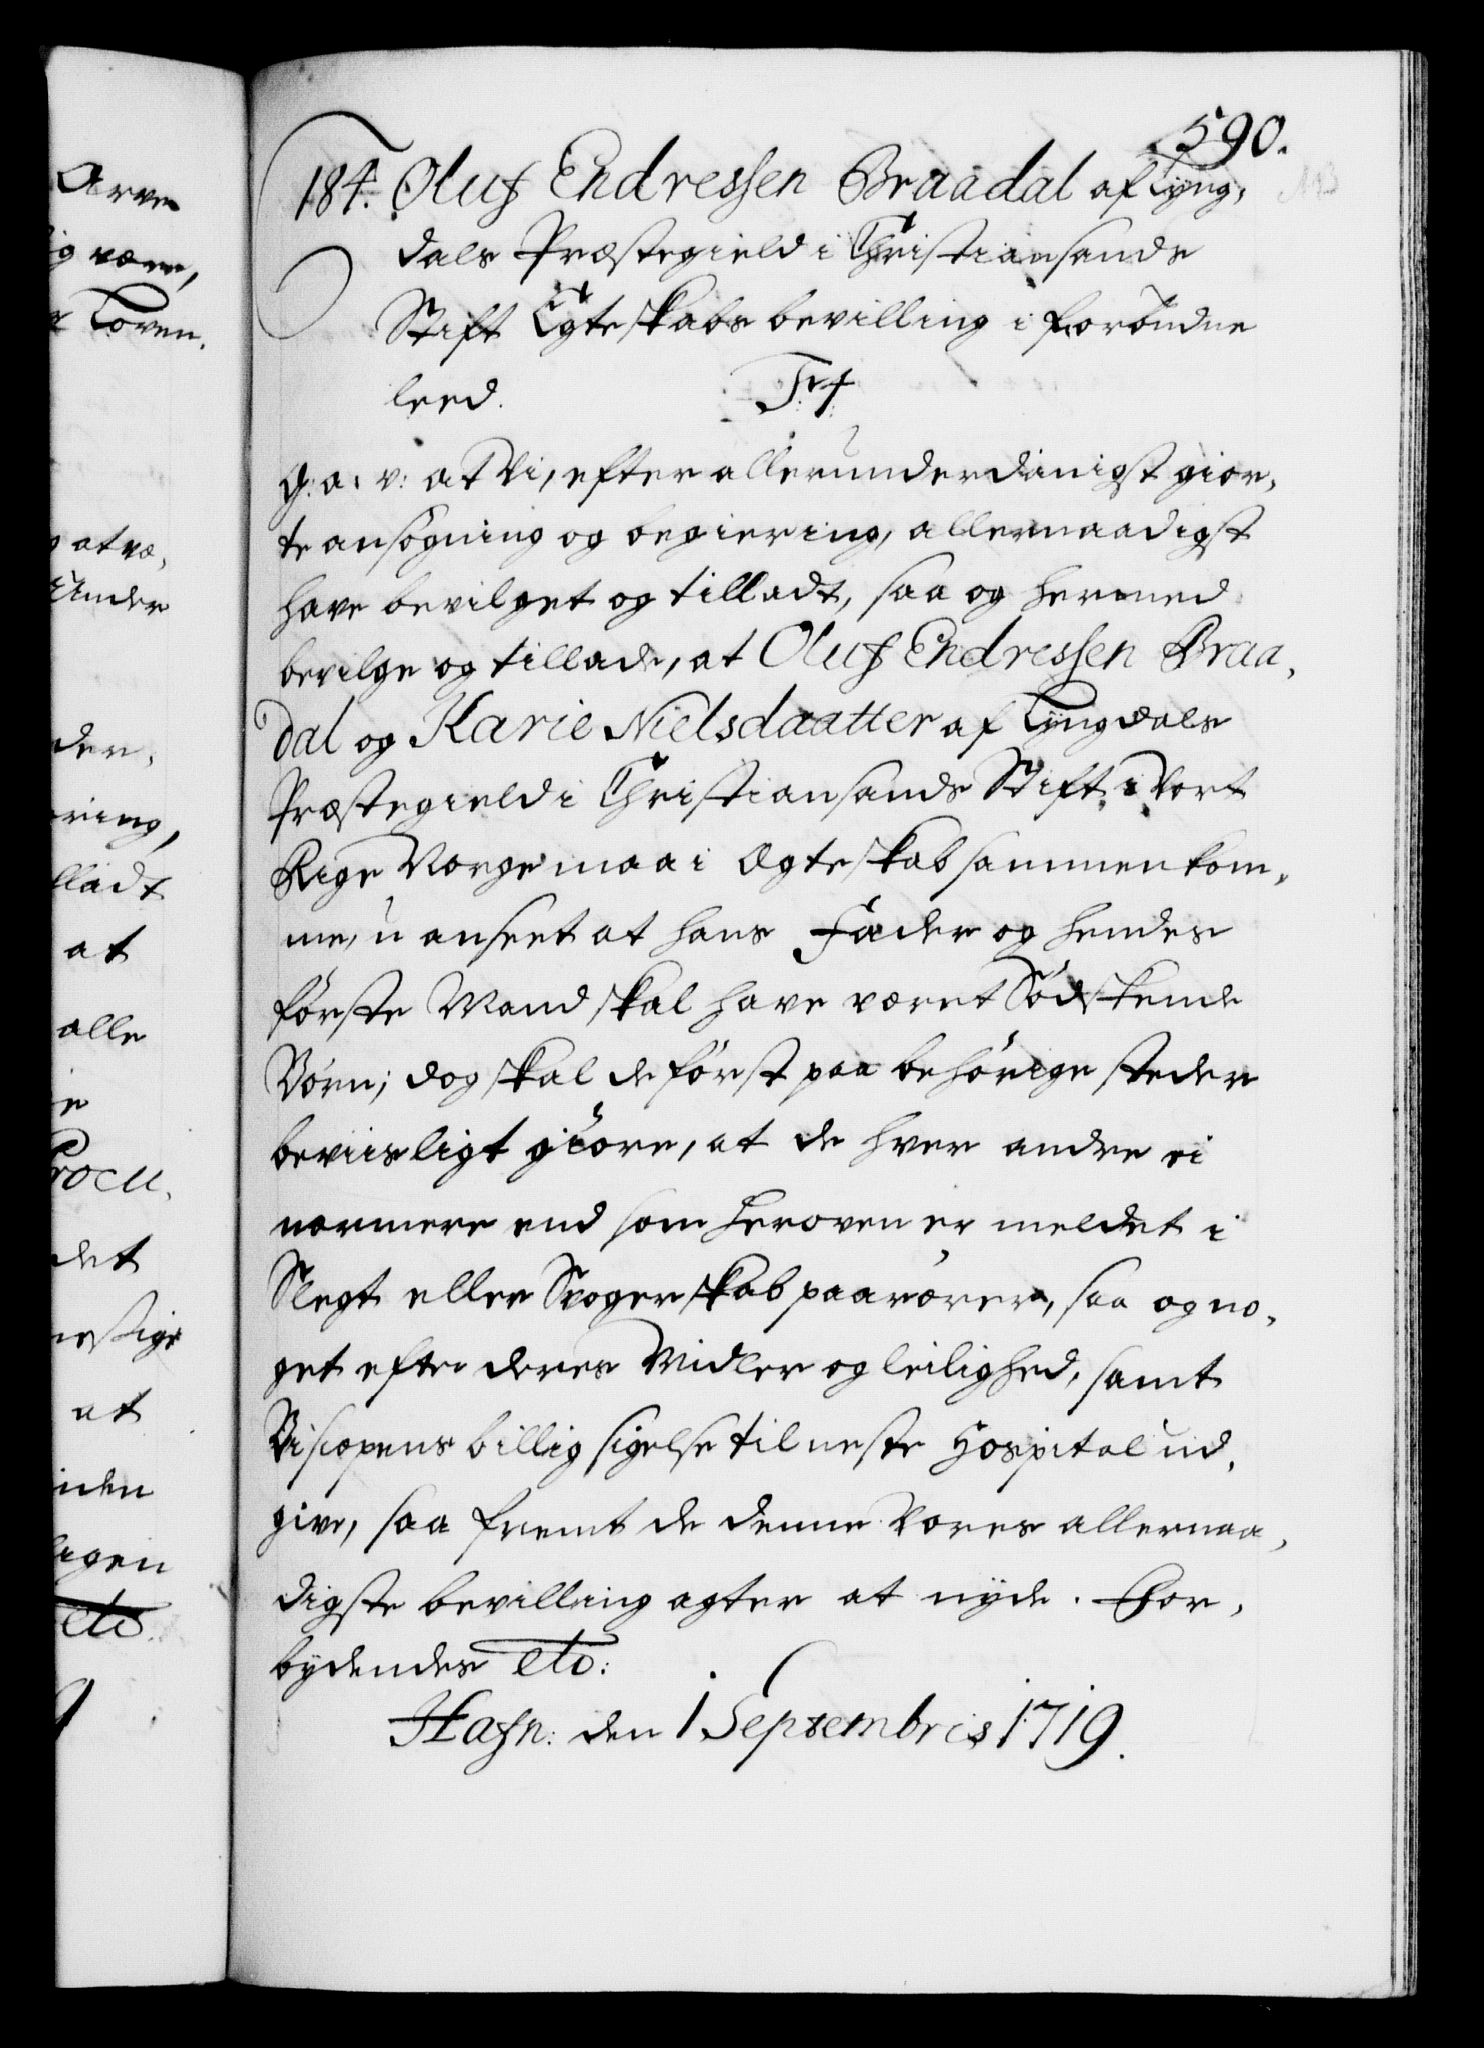 590.
184. Oluf Endressen Braadal af Lyng,
dals Præstegield i Christiansands
Stift Egteskabs bevilling i forbudne
leed. F: 4
G: a: v: at Vi, efter allerunderdanigst gior,
te ansøgning og begiering, allernaadigst
have bevilget og tilladt, saa og hermed
bevilge og tillade, at Oluf Endressen Braa,
dal og Karie Nielsdaatter af Lyngdals
Præstegield i Christiansands Stift i Vort
Rige Norge maa i Ægteskab sammenkom,
me, u anseet at hans Fader og hendes
første Mand skal have været Sødskende
Børn; dog skal de først paa behørige steder
beviisligt giøre, at de hver andre ei
nærmere end som heroven er meldet i
Slegt eller Svogerskab paarører, saa og no,
get efter deres Midler og leilighed, samt
Biscopens billig sigelse til neste Hospital ud,
give, saa fremt de denne Vores allernaa,
digste bevilling agter at nyde. For,
bydendes etc:
Hafn: den 1 Septembris 1719.
Arve
være,
Loven.
at væ,
under
der,
ring,
lladt
at
alle
Procu,
det
at
etc.